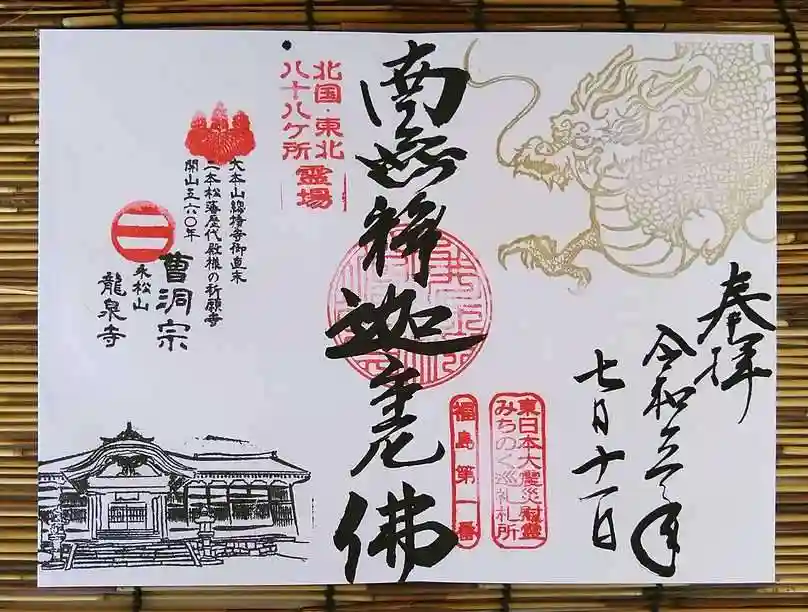 奉拝
令和年
七月十一日
東日本大震災慰霊
みちのく巡礼札所
福島第一番
南無釋迦牟尼佛
北国・東北
八十八ケ所霊場
大本山總持寺御直末
二本松藩歴代殿様の祈願寺
開山五六〇年
曹洞宗
永松山
龍泉寺